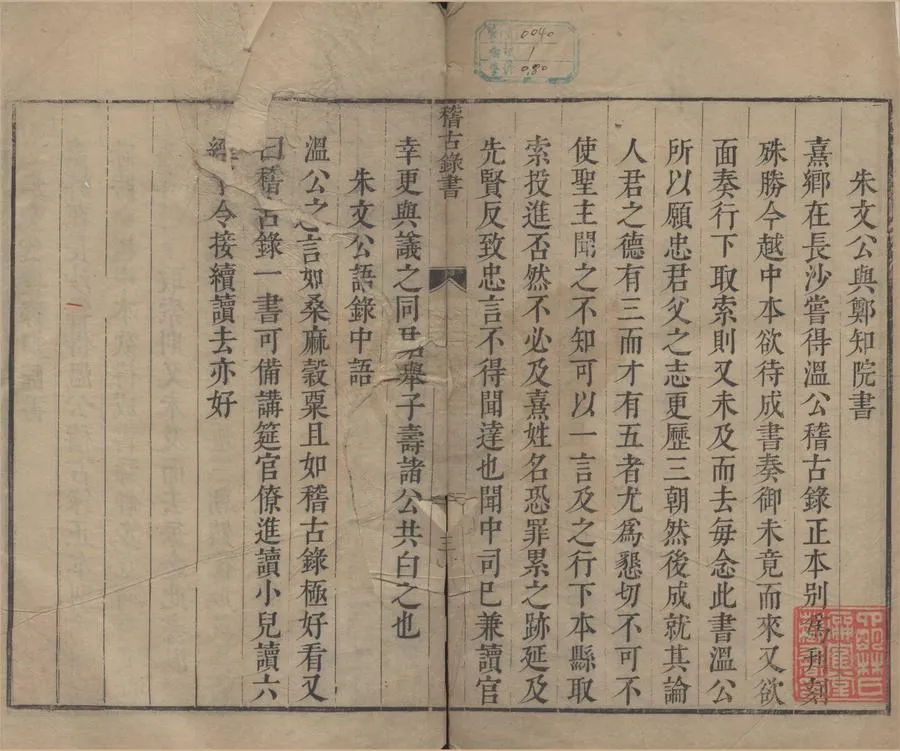 朱文公與鄭知院書
熹鄉在長沙嘗得溫公稽古錄正本别爲刋刻
殊勝今越中本欲待成書奏御未竟而來又欲
面奏行下取索則又未及而去毎念此書溫公
所以願忠君父之志更歷三朝然後成就其論
人君之德有三而才有五者尤爲懇切不可不
使聖主聞之不知可以一言及之行下本縣取
索投進否然不必及熹姓名恐罪累之跡延及
先賢反致忠言不得聞達也聞中司已兼讀官
稽古錄書
三
幸更與議之同君舉子壽諸公共白之也
朱文公語錄中語
溫公之言如桑麻穀粟且如稽古錄極好看又
曰稽古錄一書可備講筵官僚進讀小兒讀六
經了令接續讀去亦好
0040
1
0.80